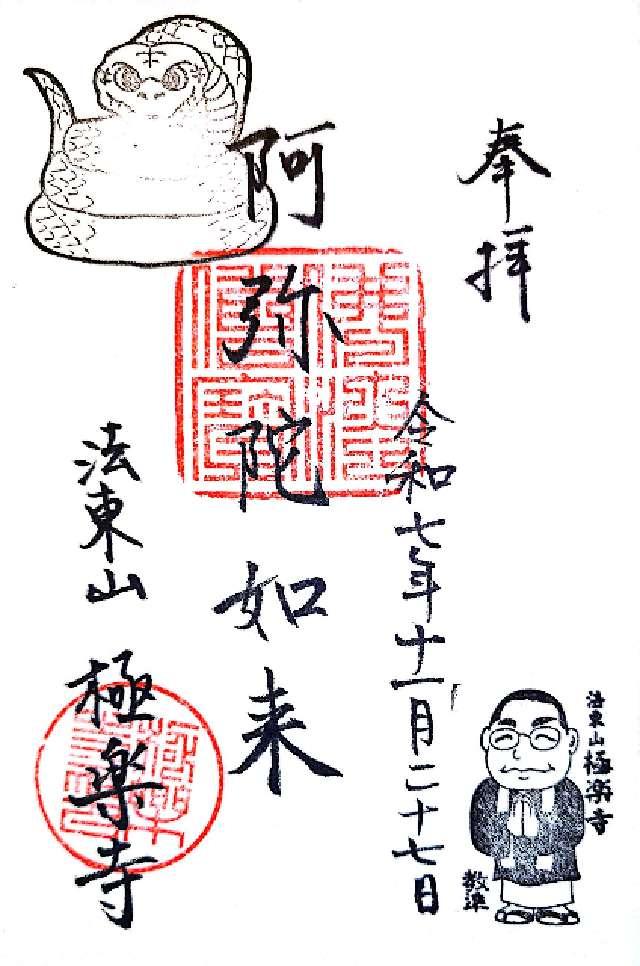 奉拝
令和七年十一月二十七日
阿弥陀如来
法東山 極楽寺
法東山極楽寺
教準